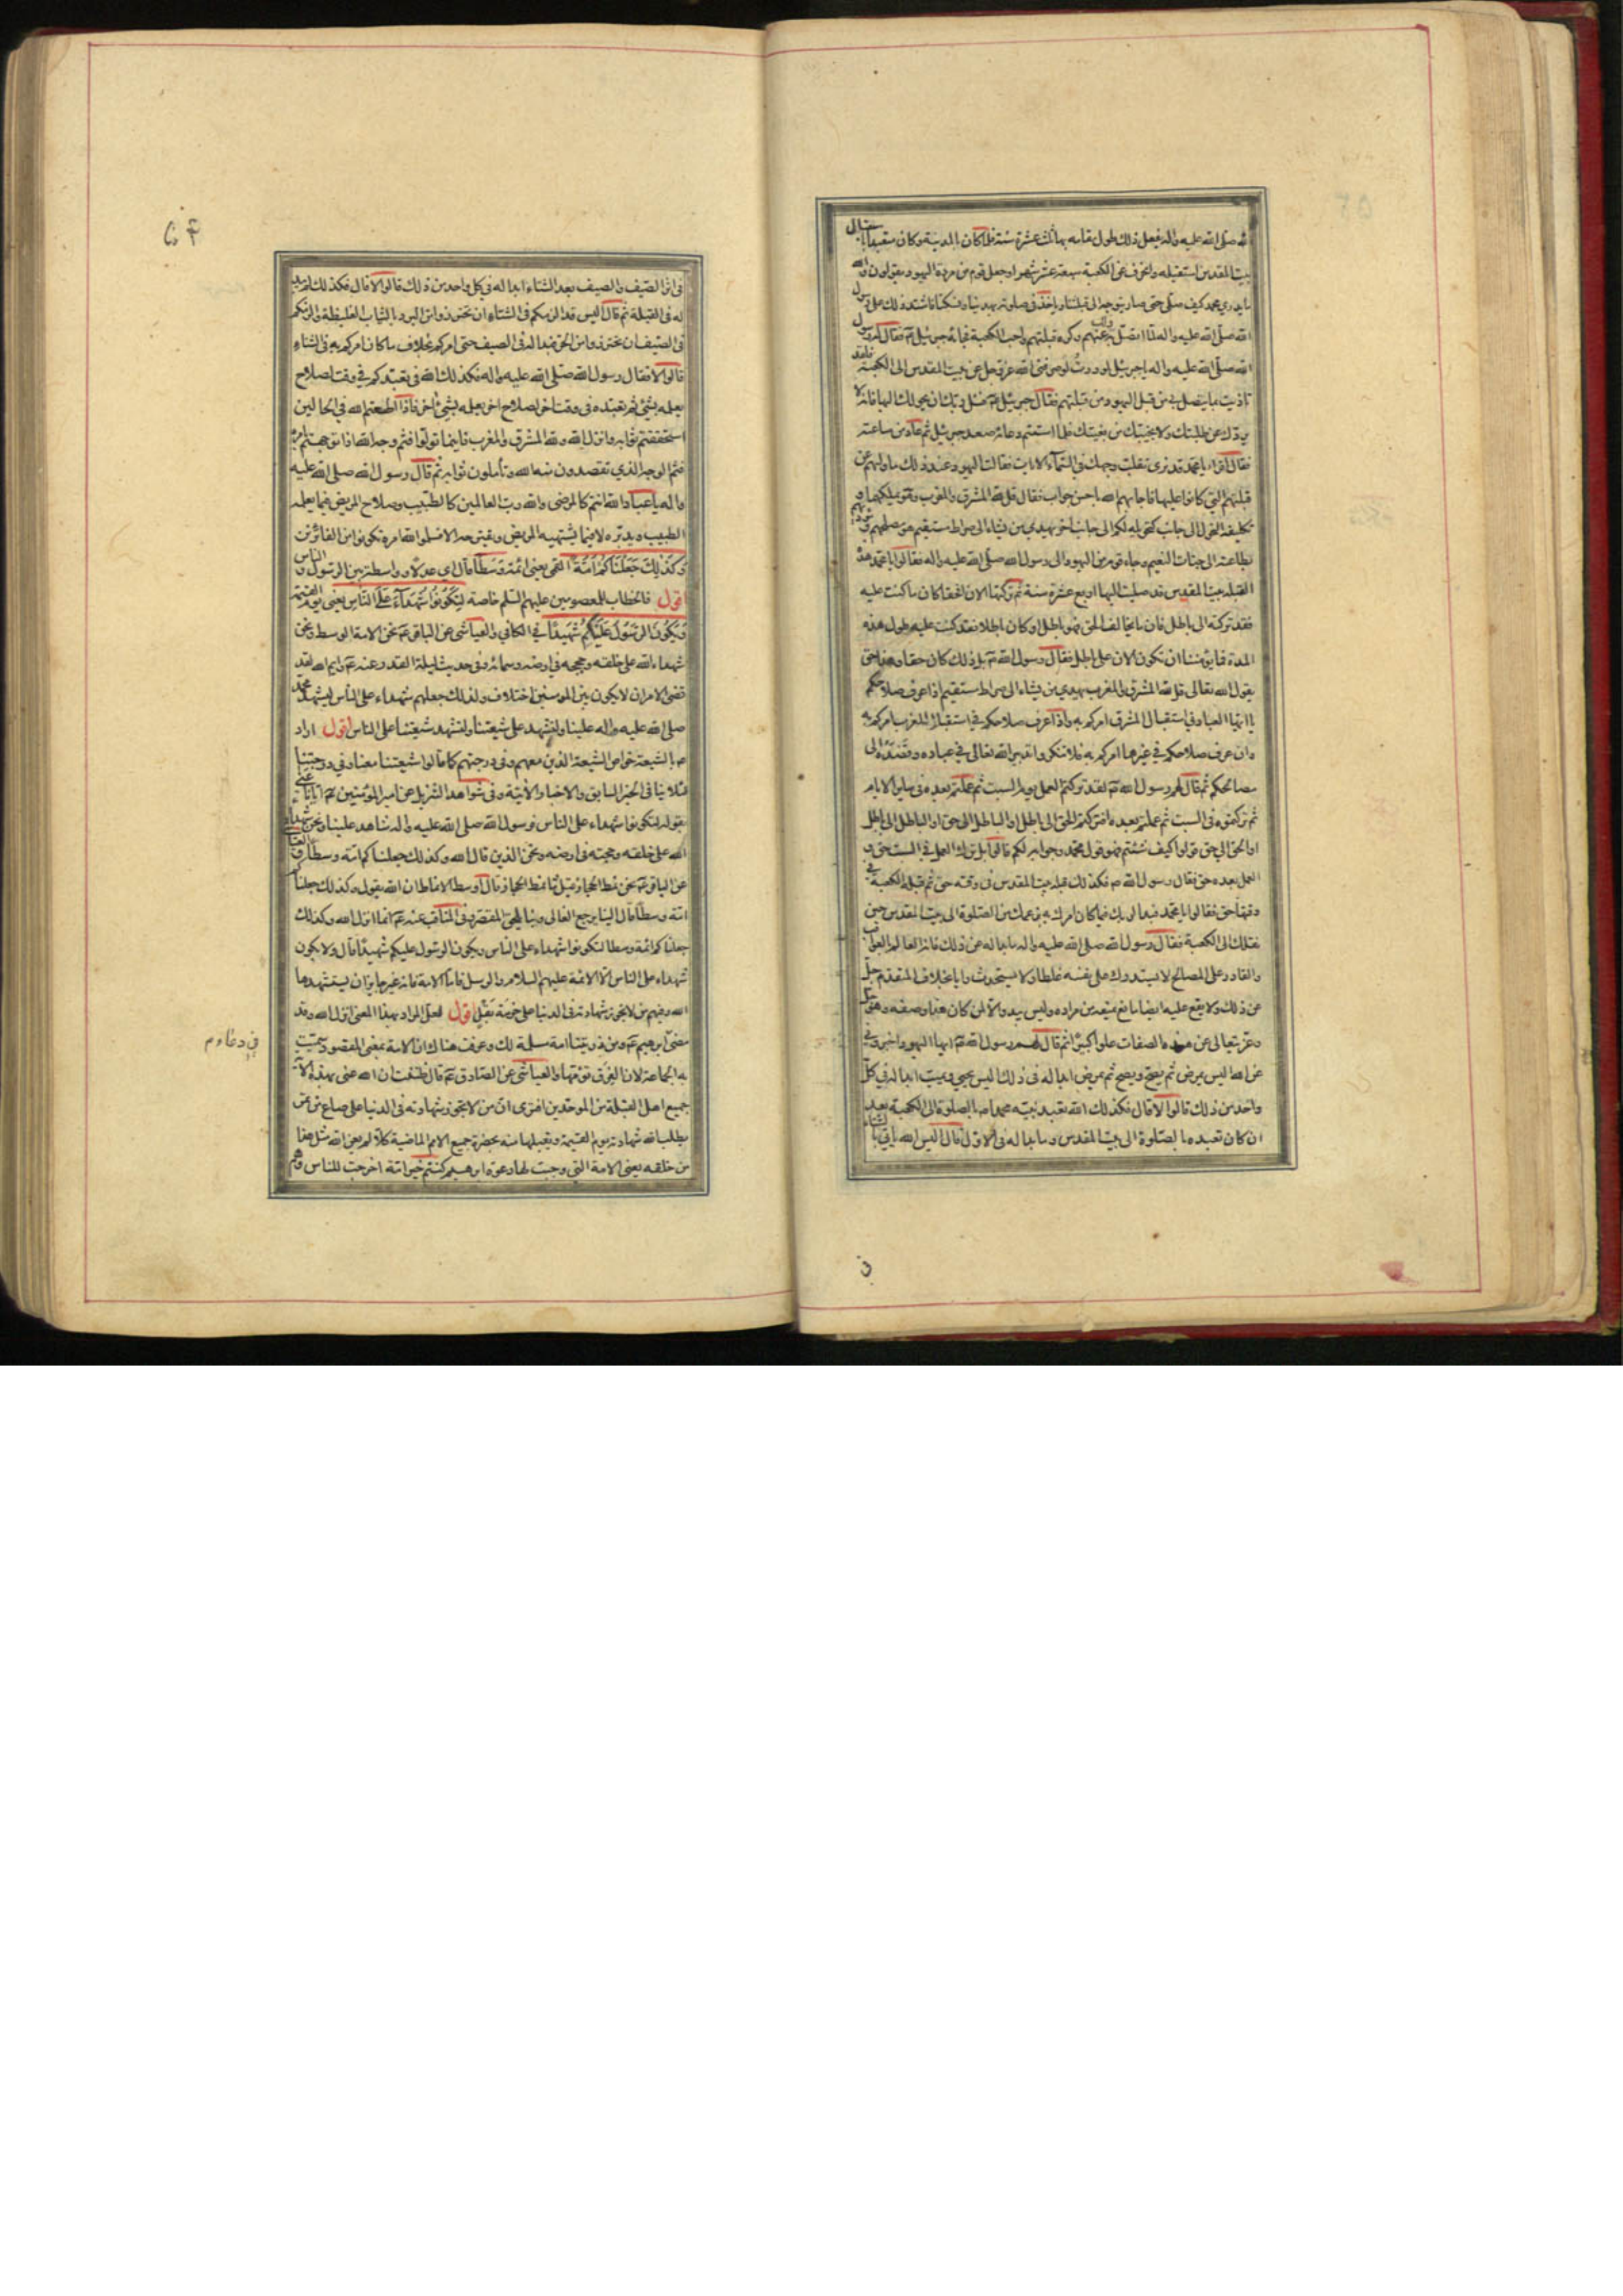 الله صلى الله عليه واله يفعل ذلك طول مقامه بها ثلث عشرة سنة فلما كان بالمدينة وكان متعبدا باستقبال
بيت المقدس استقبله وانحرف عن الكعبة سبعة عشر شهرا وجعل قوم من مردة اليهود يقولون والله
ما يدري محمد كيف صلى حتى صار يتوجه الى قبلتنا وياخذ في صلوته بهدينا ونسكنا فاشتد ذلك على رسول
الله صلى الله عليه واله لما اتصل به عنهم وكره قبلتهم واحب الكعبة فجائه جبرئيل ع فقال له رسول
الله صلى الله عليه واله يا جبرئيل لوددت لو صرفني الله عز وجل عن بيت المقدس الى الكعبة فلقد
تاذيت بما يتصل بي من قبل اليهود من قبلتهم فقال جبرئيل ع فسل ربك ان يحولك اليها فانه لا
يردك عن طلبتك ولا يخيبك من بغيتك فلما استتم دعائه صعد جبرئيل ثم عاد من ساعته
فقال اقرء يا محمد قد نرى تقلب وجهك في السماء الايات فقالت اليهود عند ذلك ما وليهم عن
قبلتهم التي كانوا عليها فاجابهم الله باحسن جواب فقال قل لله المشرق والمغرب وهو يملكهما و
تكليفه التحول الى جانب كتحويله لكم الى جانب اخر يهدي من يشاء الى صراط مستقيم هو مصلحهم و
بطاعته الى جنات النعيم وجاء قوم من اليهود الى رسول الله صلى الله عليه واله فقالوا يا محمد هذه
القبلة بيت المقدس قد صليت اليها اربع عشرة سنة ثم تركتها الان افحقا كان ما كنت عليه
فقد تركته الى باطل فان ما يخالف الحق فهو باطل او كان باطلا فقد كنت عليه طول هذه
المدة فما يؤمننا ان تكون الان على باطل فقال رسول الله ص بل ذلك كان حقا وهذا حق
يقول الله تعالى قل لله المشرق والمغرب يهدي من يشاء الى صراط مستقيم اذا عرف صلاحكم
يا ايها العباد في استقبال المشرق امركم به واذا عرف صلاحكم في استقبال المغرب امركم به
وان عرف صلاحكم في غيرهما امركم به فلا تنكروا تدبير الله تعالى في عباده وقصده الى
مصالحكم ثم قال لهم رسول الله ص لقد تركتم العمل يوم السبت ثم عملتم بعده في ساير الايام
ثم تركتموه في السبت ثم عملتم بعده افتركتم الحق الى باطل او الباطل الى حق او الباطل الى باطل
او الحق الى حق قولوا كيف شئتم فهو قول محمد وجوابه لكم قالوا بل ترك العمل في السبت حق و
العمل بعده حق فقال رسول الله ص فكذلك قبلة بيت المقدس في وقته حق ثم قبلة الكعبة في
وقتها حق فقالوا يا محمد فبدا لربك فيما كان امرك به بزعمك من الصلوة الى بيت المقدس حين
نقلك الى الكعبة فقال رسول الله صلى الله عليه واله ما بدا له عن ذلك فانه العالم بالعواقب
والقادر على المصالح لا يستدرك على نفسه غلطا ولا يستحدث رايا بخلاف المتقدم جل
عن ذلك ولا يقع عليه ايضا مانع يمنعه من مراده وليس يبدو الا لمن كان هذا وصفه وهو جل
وعز يتعالى عن هذه الصفات علوا كبيرا ثم قال لهم رسول الله ص ايها اليهود اخبروني
عن الله اليس يمرض ثم يصح ويصح ثم يمرض ابدا له في ذلك اليس يحيي ويميت ابدا له في كل
واحد من ذلك قالوا لا قال فكذلك الله تعبد نبيه محمدا بالصلوة الى الكعبة بعد
ان كان تعبده بالصلوة الى بيت المقدس وما بدا له في الاول ثم قال اليس الله ياتي بالشتاء
في اثر الصيف والصيف بعد الشتاء ابدا له في كل واحد من ذلك قالوا لا قال فكذلك لم يبد
له في القبلة ثم قال اليس قد الزمكم في الشتاء ان تحترزوا من البرد بالثياب الغليظة والزمكم
في الصيف ان تحترزوا من الحر فبدا له في الصيف حتى امركم بخلاف ما كان امركم به في الشتاء
قالوا لا فقال رسول الله صلى الله عليه واله فكذلك الله في تعبدكم في وقت لصلاح
يعلمه بشيء ثم تعبده في وقت اخر لصلاح اخر يعلمه بشيء اخر فاذا اطعتم الله في الحالين
استحققتم ثوابه وانزل الله ولله المشرق والمغرب فاينما تولوا فثم وجه الله اذا توجهتم بامره
فثم الوجه الذي تقصدون منه الله وتأملون ثوابه ثم قال رسول الله صلى الله عليه
واله يا عباد الله انتم كالمرضى والله رب العالمين كالطبيب وصلاح المريض فيما يعلمه
الطبيب ويدبره لا فيما يشتهيه المريض ويقترحه الا فسلموا لله امره تكونوا من الفائزين
وكذلك جعلناكم امة القمي يعني ائمة وسطا قال اي عدلا وواسطة بين الرسول والناس
اقول فالخطاب للمعصومين عليهم السلم خاصة لتكونوا شهداء على الناس يعني يوم القيمة
ويكون الرسول عليكم شهيدا في الكافي والعياشي عن الباقر ع نحن الامة الوسط ونحن
شهداء الله على خلقه وحججه في ارضه وسمائه وفي حديث ليلة القدر عنه ع وايم الله لقد
قضي الامر ان لا يكون بين المؤمنين اختلاف ولذلك جعلهم شهداء على الناس ليشهد محمد
صلى الله عليه واله علينا ولنشهد على شيعتنا ولتشهد شيعتنا على الناس اقول اراد
ص بالشيعة خواص الشيعة الذين معهم وفي درجتهم كما قالوا شيعتنا معنا وفي درجتنا
فلا ينافي الخبر السابق والاخبار الاتية وفي شواهد التنزيل عن امير المؤمنين ع ايانا عنى
بقوله لتكونوا شهداء على الناس فرسول الله صلى الله عليه واله شاهد علينا ونحن شهداء
الله على خلقه وحجته في ارضه ونحن الذين قال الله وكذلك جعلناكم امة وسطا والعياشي
عن الباقر ع نحن نمط الحجاز قيل وما نمط الحجاز قال اوسط الانماط ان الله يقول وكذلك جعلناكم
امة وسطا قال الينا يرجع الغالي وبنا يلحق المقصر وفي المناقب عنه ع انما انزل الله وكذلك
جعلناكم ائمة وسطا لتكونوا شهداء على الناس ويكون الرسول عليكم شهيدا قال ولا يكون
شهداء على الناس الا الائمة عليهم السلام والرسل فاما الامة فانه غير جايز ان يستشهدها
الله وفيهم من لا تجوز شهادته في الدنيا على حزمة بقل اقول لعل المراد بهذا المعنى انزل الله وقد
مضى
به الجماعة لان الفرق تؤمها والعياشي عن الصادق ع قال ظننت ان الله عنى بهذه الآية
جميع اهل القبلة من الموحدين افترى ان من لا تجوز شهادته في الدنيا على صاع من تمر
يطلب الله شهادته يوم القيمة ويقبلها منه بحضرة جميع الامم الماضية كلا لم يعن الله مثل هذا
من خلقه يعني الامة التي وجبت لها دعوة ابرهيم كنتم خير امة اخرجت للناس وهم
في دعاء م